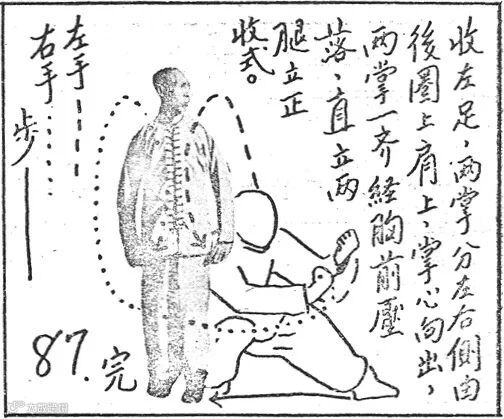 收左足，兩掌分左右側由
後圈上肩上，掌心向出，
兩掌一齊経胸前壓
落、直立兩
腿立正
收式。
左手
右手
步
87.完